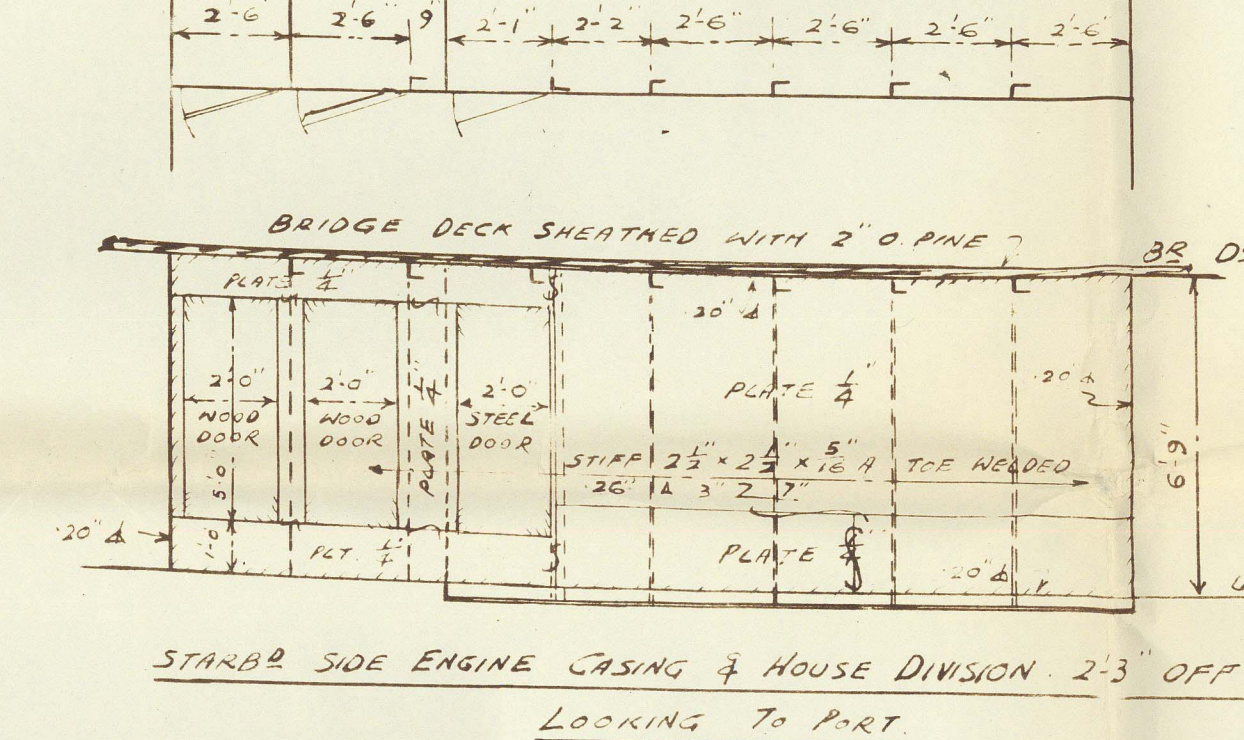 2'-6" 2'-6" 9" 2'-1" 2'-2" 2'-6" 2'-6" 2'-6" 2'-6"
BRIDGE DECK SHEATHED WITH 2" O. PINE
BR DK
PLATE 1/4"
·20"
PLATE 1/4"
·20"
2'-0"
WOOD
DOOR
2'-0"
WOOD
DOOR
PLATE 1/4"
2'-0"
STEEL
DOOR
6'-9"
STIFF 2 1/2" × 2 1/2" × 5/16" A TOE WELDED
·26" 3" 7"
5'-0"
·20"
1'-0"
PLT. 1/4"
PLATE
·20"
STARBD SIDE ENGINE CASING & HOUSE DIVISION. 2'-3" OFF
LOOKING TO PORT.